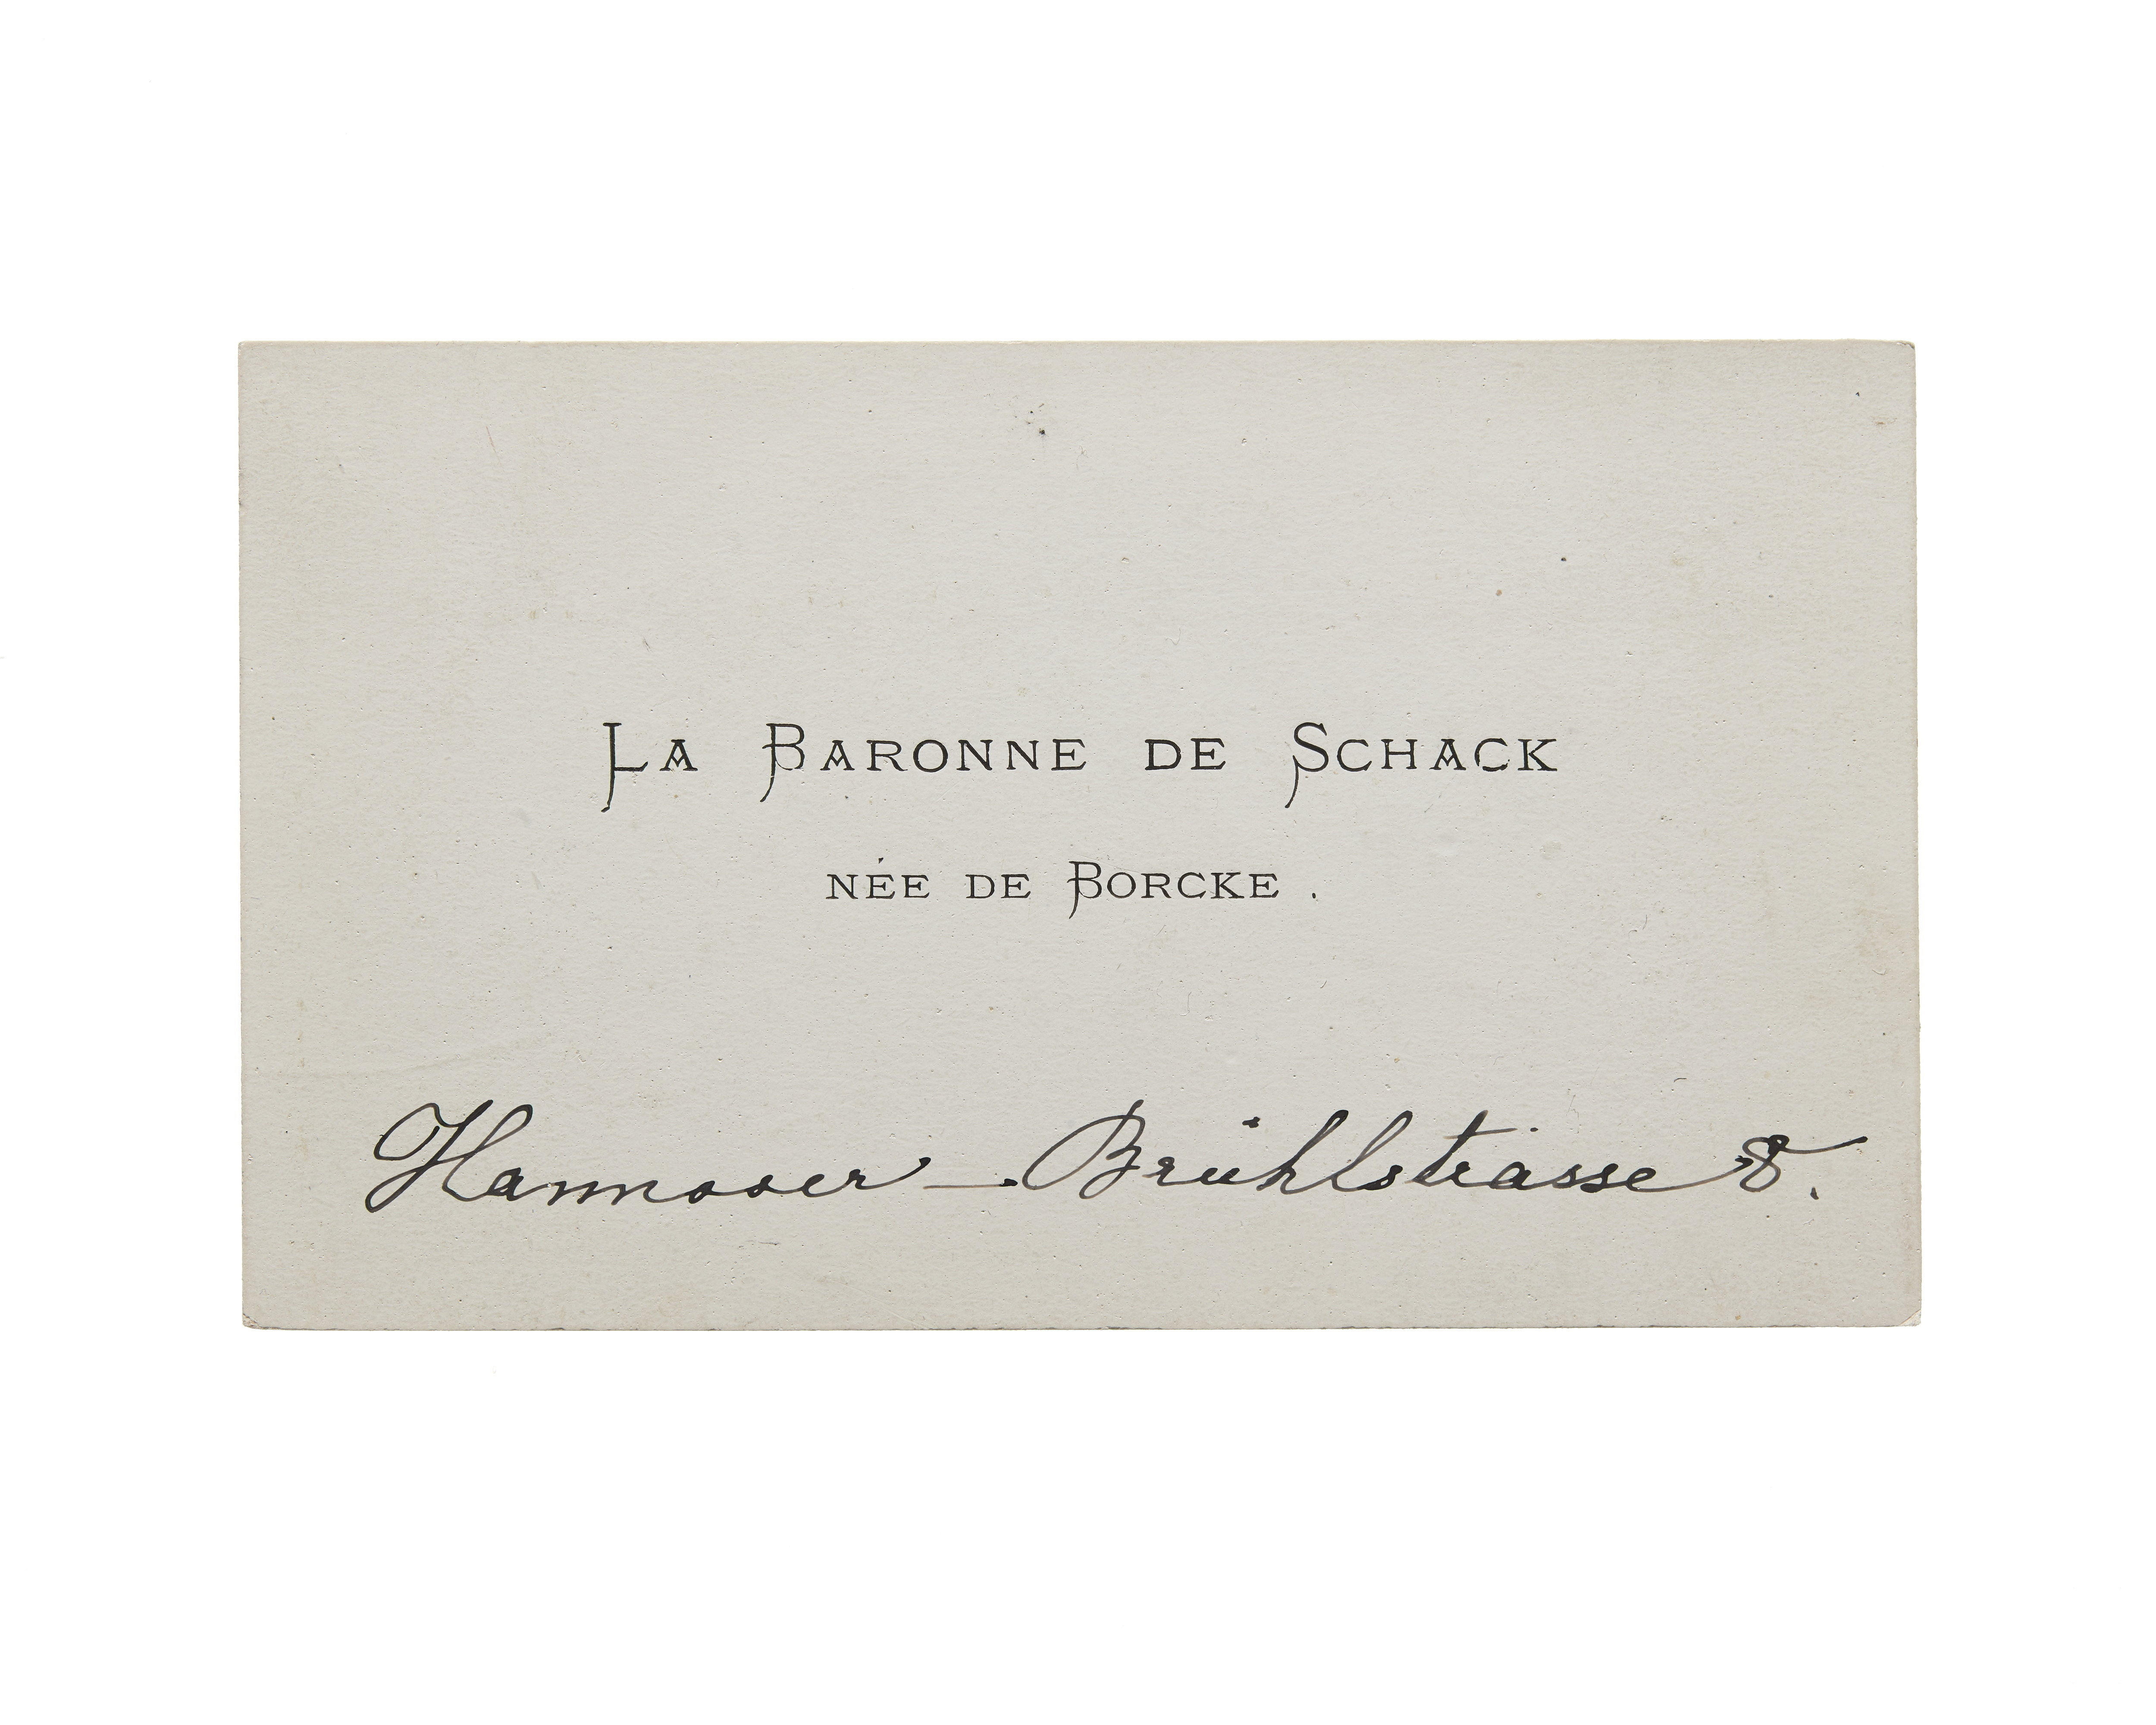 La Baronne de Schack
née de Borcke .
Hannover – Brühlstrasse 8.